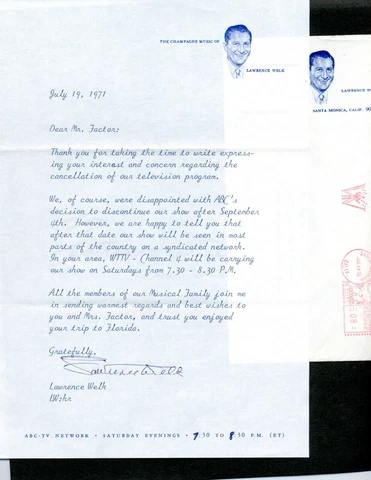 THE CHAMPAGNE MUSIC OF
LAWRENCE WELK
July 19, 1971
Dear Mr. Factor:
Thank you for taking the time to write express-
ing your interest and concern regarding the
cancellation of our television program.
We, of course, were disappointed with ABC's
decision to discontinue our show after September
4th. However, we are happy to tell you that
after that date our show will be seen in most
parts of the country on a syndicated network.
In your area, WTTV - Channel 4 will be carrying
our show on Saturdays from 7.30 - 8.30 P.M.
All the members of our Musical Family join me
in sending warmest regards and best wishes to
you and Mrs. Factor, and trust you enjoyed
your trip to Florida.
Gratefully,
Lawrence Welk
Lawrence Welk
LW:hr
ABC-TV NETWORK • SATURDAY EVENINGS • 7:30 TO 8:30 P.M. (ET)
LAWRENCE W
SANTA MONICA, CALIF. 90